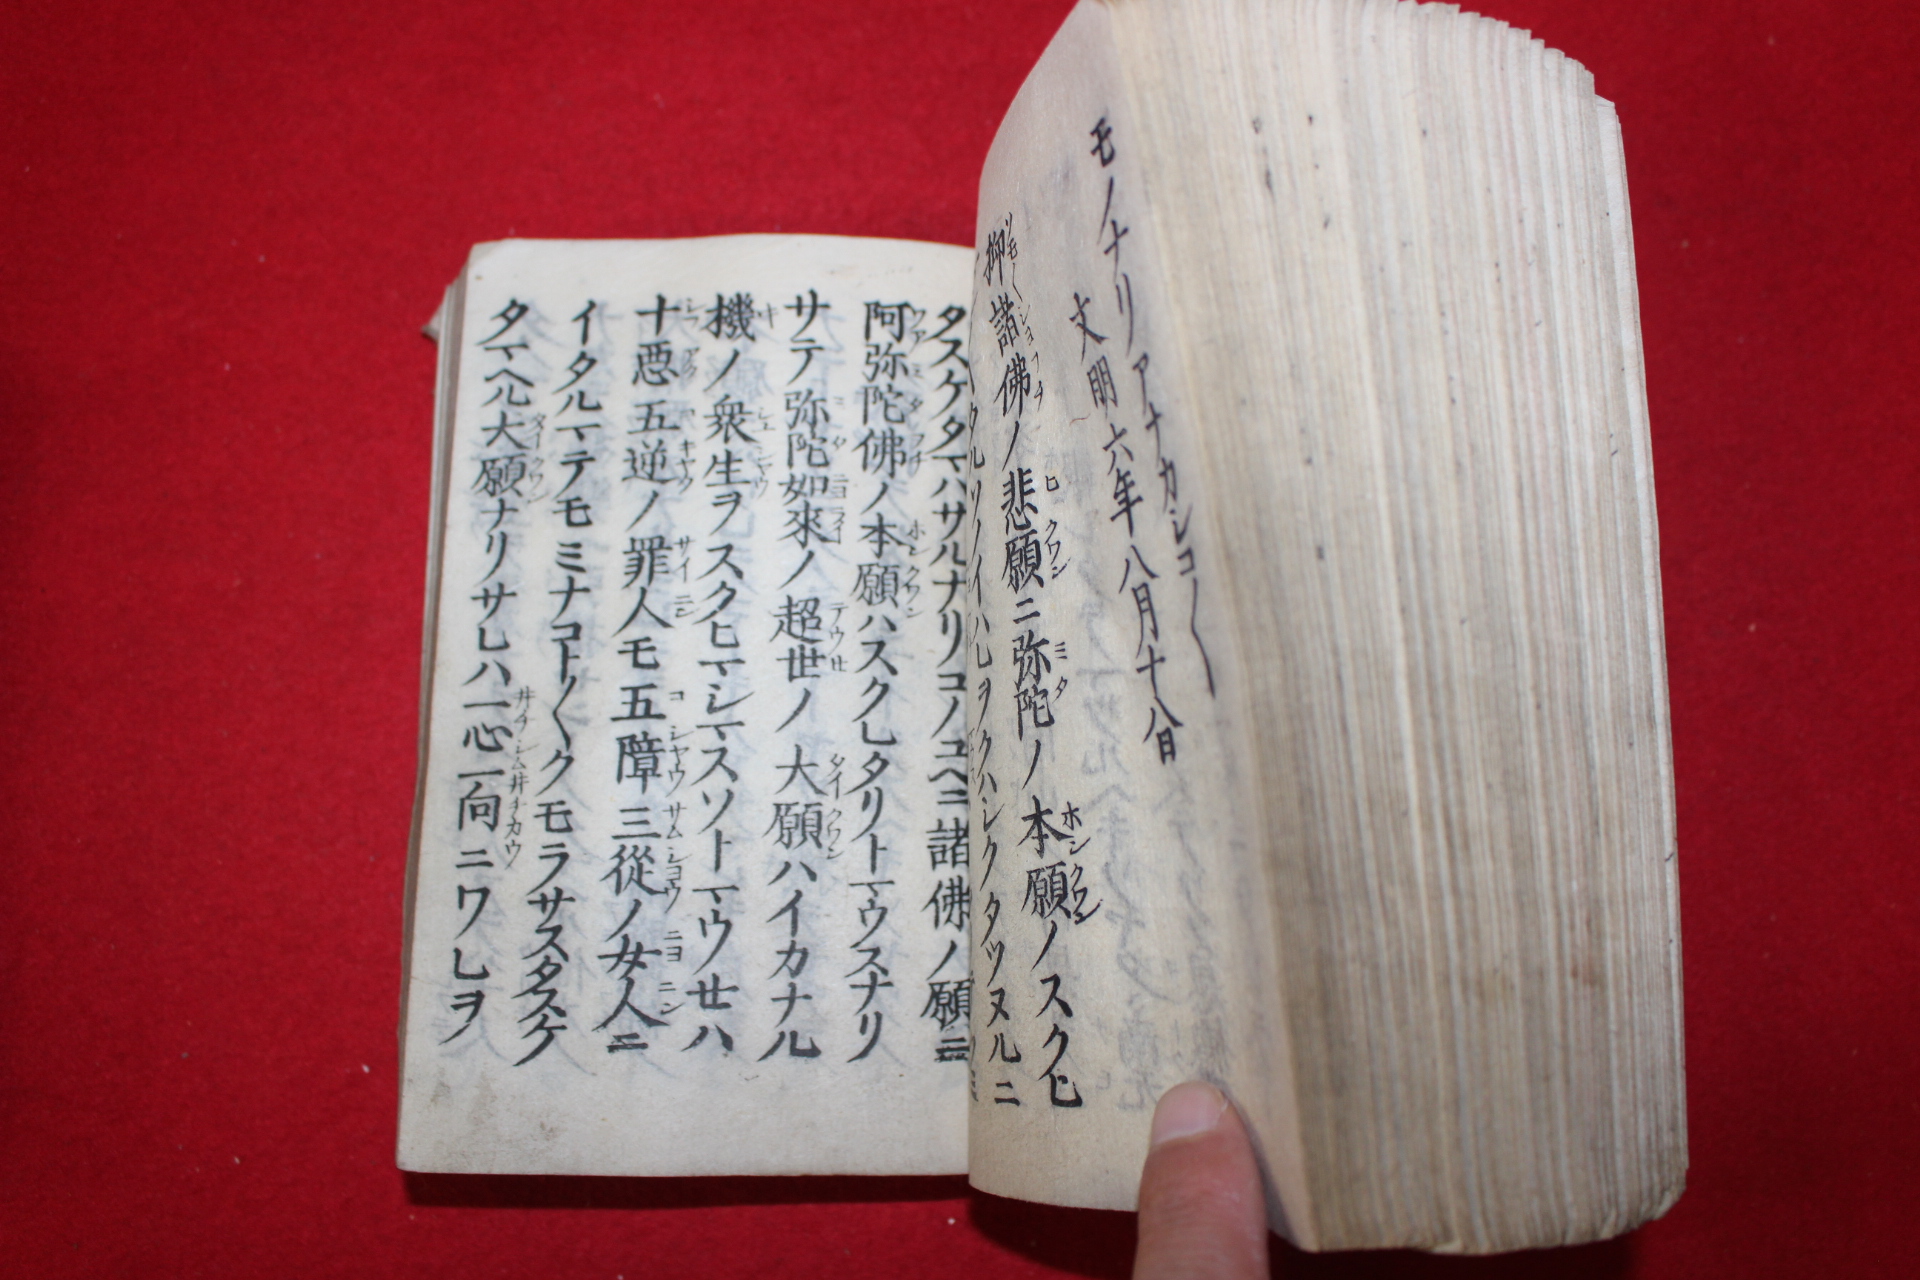 モノナリアナカシコ〱
文明六年八月十八日
抑諸佛ノ悲願ニ弥陀ノ本願ノスクヒ
タルソノイハレヲクハシクタツヌルニ
タスケタマハサルナリコノユヘニ諸佛ノ願ニ
阿弥陀佛ノ本願ハスクレタリトマウスナリ
サテ弥陀如來ノ超世ノ大願ハイカナル
機ノ衆生ヲスクヒマシマスソトマウセハ
十悪五逆ノ罪人モ五障三從ノ女人ニ
イタルマテモミナコト〱クモラサスタスケ
タマヘル大願ナリサレハ一心一向ニワレヲ